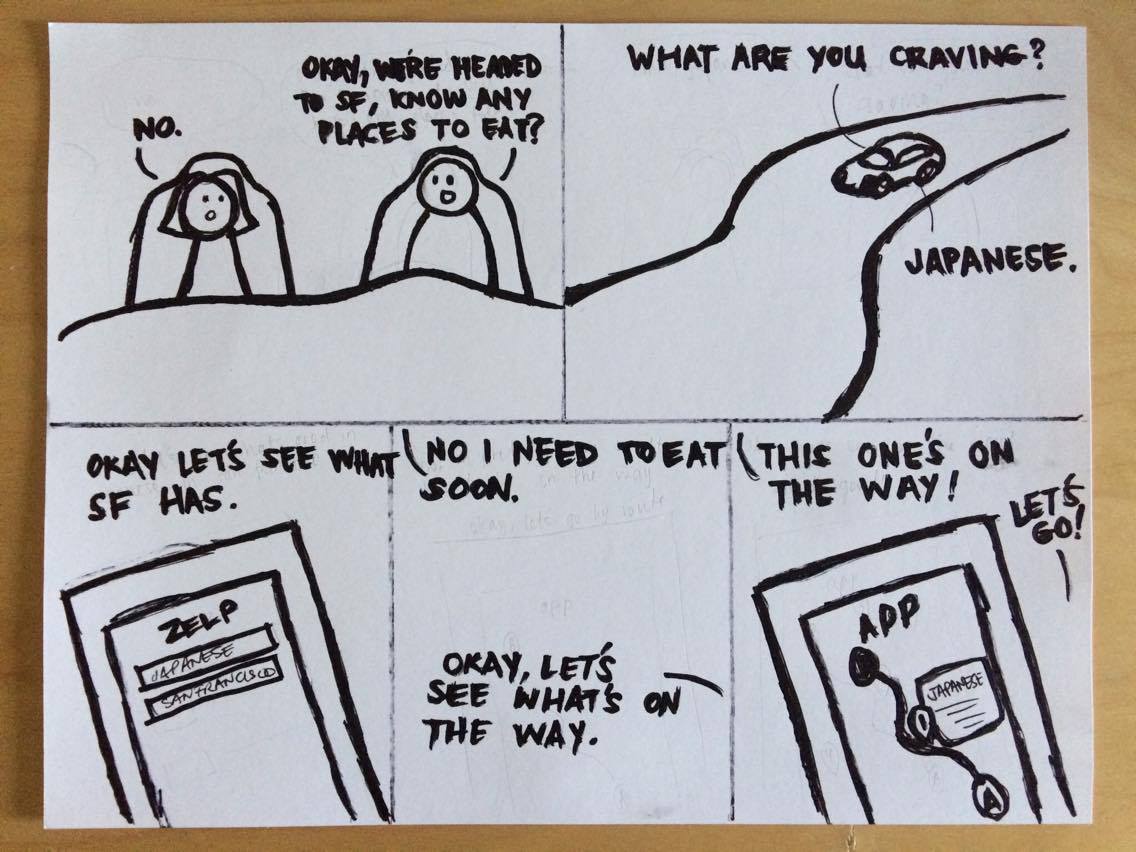 NO.
OKAY, WE'RE HEADED
TO SF, KNOW ANY
PLACES TO EAT?
WHAT ARE YOU CRAVING?
JAPANESE.
OKAY LET'S SEE WHAT
SF HAS.
ZELP
JAPANESE
SAN FRANCISCO
NO I NEED TO EAT
SOON.
OKAY, LET'S
SEE WHAT'S ON
THE WAY.
THIS ONE'S ON
THE WAY!
LET'S
GO!
APP
B
JAPANESE
A